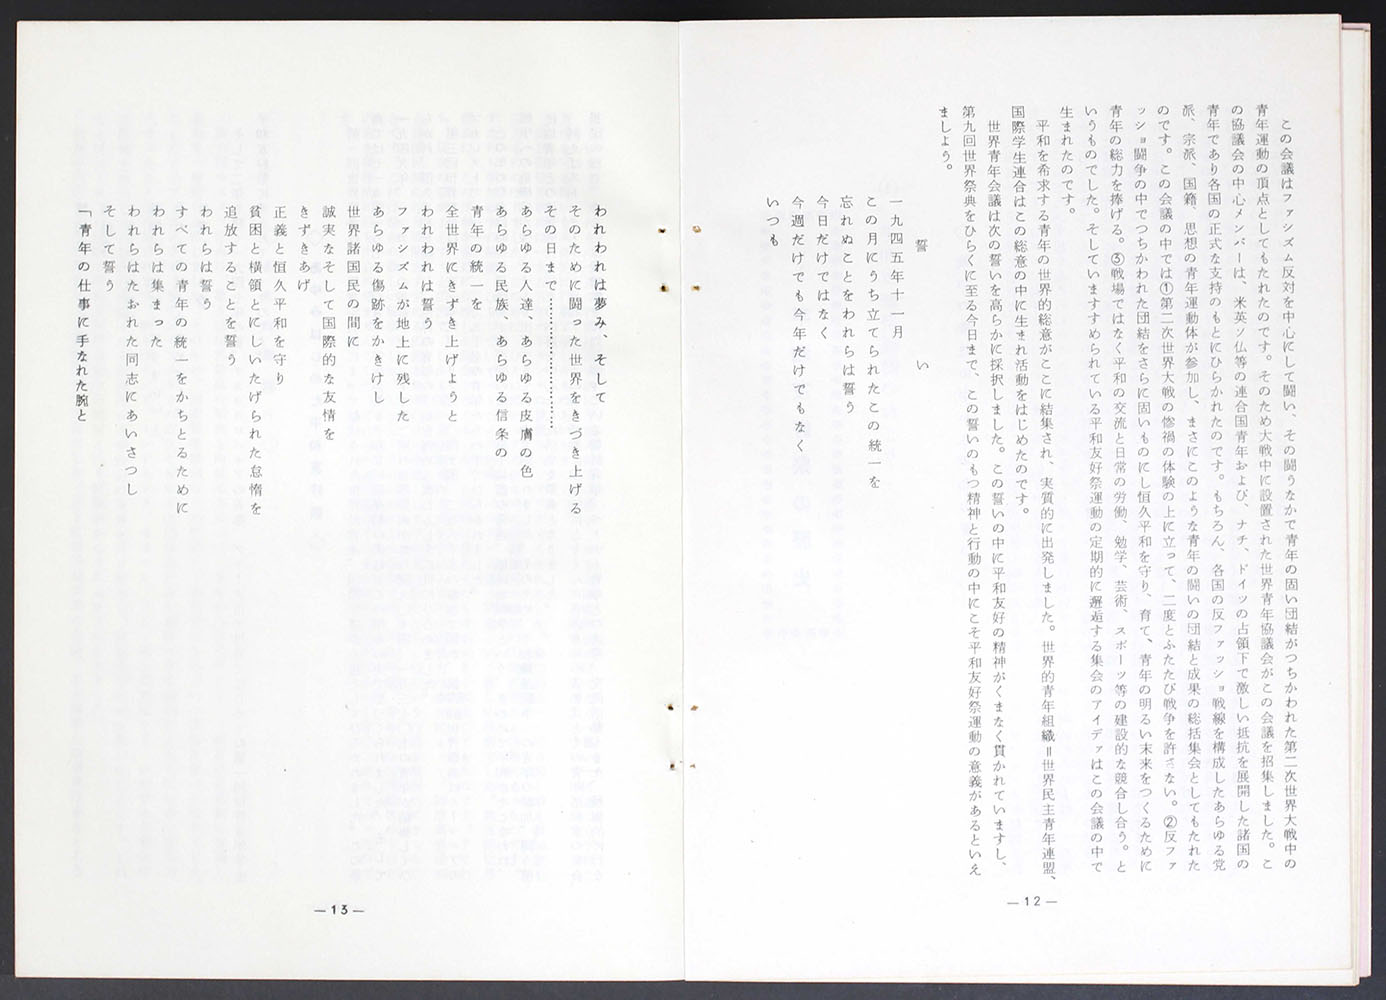 この会議はファシズム反対を中心にして闘い、その闘うなかで青年の固い団結がつちかわれた第二次世界大戦中の
青年運動の頂点としてもたれたのです。そのため大戦中に設置された世界青年協議会がこの会議を招集しました。こ
の協議会の中心メンバーは、米英ソ仏等の連合国青年および、ナチ、ドイツの占領下で激しい抵抗を展開した諸国の
青年であり各国の正式な支持のもとにひらかれたのです。もちろん、各国の反ファッショ戦線を構成したあらゆる党
派、宗派、国籍、思想の青年運動体が参加し、まさにこのような青年の闘いの団結と成果の総括集会としてもたれた
のです。この会議の中では①第二次世界大戦の惨禍の体験の上に立って、二度とふたたび戦争を許さない。②反ファ
ッショ闘争の中でつちかわれた団結をさらに固いものにし恒久平和を守り、育て、青年の明るい未来をつくるために
青年の総力を捧げる。③戦場ではなく平和の交流と日常の労働、勉学、芸術、スポーツ等の建設的な競合し合う。と
いうものでした。そしていますすめられている平和友好祭運動の定期的に邂逅する集会のアイデァはこの会議の中で
生まれたのです。
平和を希求する青年の世界的総意がここに結集され、実質的に出発しました。世界的青年組織＝世界民主青年連盟、
国際学生連合はこの総意の中に生まれ活動をはじめたのです。
世界青年会議は次の誓いを高らかに採択しました。この誓いの中に平和友好の精神がくまなく貫かれていますし、
第九回世界祭典をひらくに至る今日まで、この誓いのもつ精神と行動の中にこそ平和友好祭運動の意義があるといえ
ましよう。
誓い
一九四五年十一月
この月にうち立てられたこの統一を
忘れぬことをわれらは誓う
今日だけではなく
今週だけでも今年だけでもなく
いつも
—12—
われわれは夢み、そして
そのために闘った世界をきづき上げる
その日まで……………
あらゆる人達、あらゆる皮膚の色
あらゆる民族、あらゆる信条の
青年の統一を
全世界にきずき上げようと
われわれは誓う
ファシズムが地上に残した
あらゆる傷跡をかきけし
世界諸国民の間に
誠実なそして国際的な友情を
きずきあげ
正義と恒久平和を守り
貧困と横領とにしいたげられた怠惰を
追放することを誓う
われらは誓う
すべての青年の統一をかちとるために
われらは集まった
われらはたおれた同志にあいさつし
そして誓う
「青年の仕事に手なれた腕と
—13—